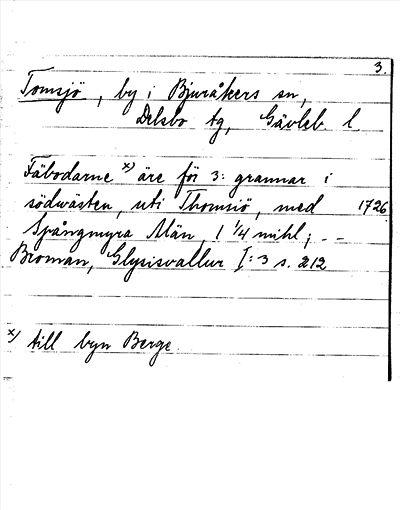 3.
Tomsjö, by i Bjuråkers sn,
Delsbo tg, Gävleb. l
Fäbodarne x) äre för 3: grannar i
södwästen, uti Thomsiö, med 1726
Spångmyra Alän, 1 1/4 mihl; - -
Broman, Glysisvallur I: 3 s. 212
x) till byn Berge.